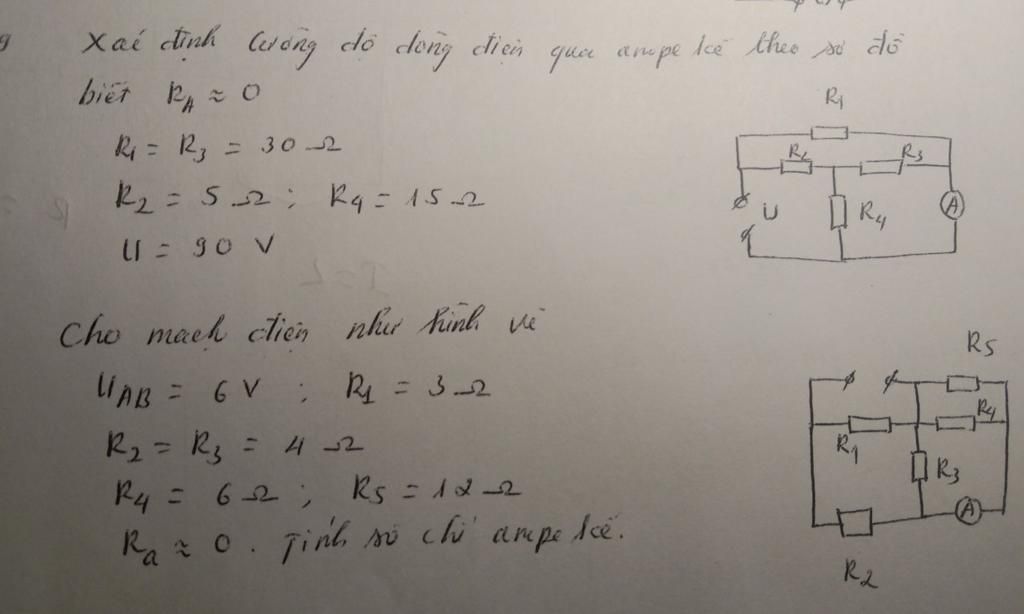 Xác định cường độ dòng điện qua ampe kế theo sơ đồ
biết RA ≈ 0
R1 = R3 = 30 Ω
R2 = 5 Ω ; R4 = 15 Ω
U = 90 V
R1
R2
R3
U
R4
A
Cho mạch điện như hình vẽ
UAB = 6 V ; R1 = 3 Ω
R2 = R3 = 4 Ω
R4 = 6 Ω ; R5 = 12 Ω
Ra ≈ 0 . Tính số chỉ ampe kế.
R5
R4
R1
R3
A
R2